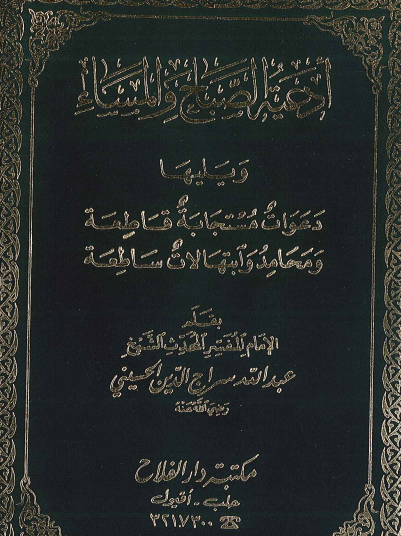 أَدْعِيَةُ الصَّبَاحِ وَالمَسَاءِ
وَيَليهَا
دَعَوَاتٌ مُسْتَجَابَةٌ قَاطِعَة
وَمَحَامِدُ وَٱبْتِهَالَاتٌ سَاطِعَة
بقَلَم
الإمَام المفَسِّر المُحَدِّث الشَّيْخ
عبد الله سراج الدّين الحسَيني
رَضِيَ ٱللَّهُ عَنْهُ
مكتبة دار الفلاح
حلب - أقيول
☎ ٣٢١٧٣٠٠